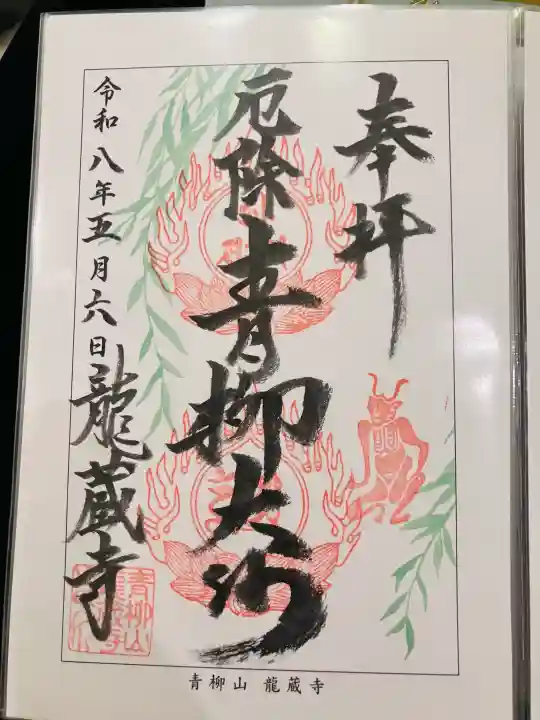 奉拝
厄除青柳大師
令和八年五月六日
龍蔵寺
青柳山 龍蔵寺